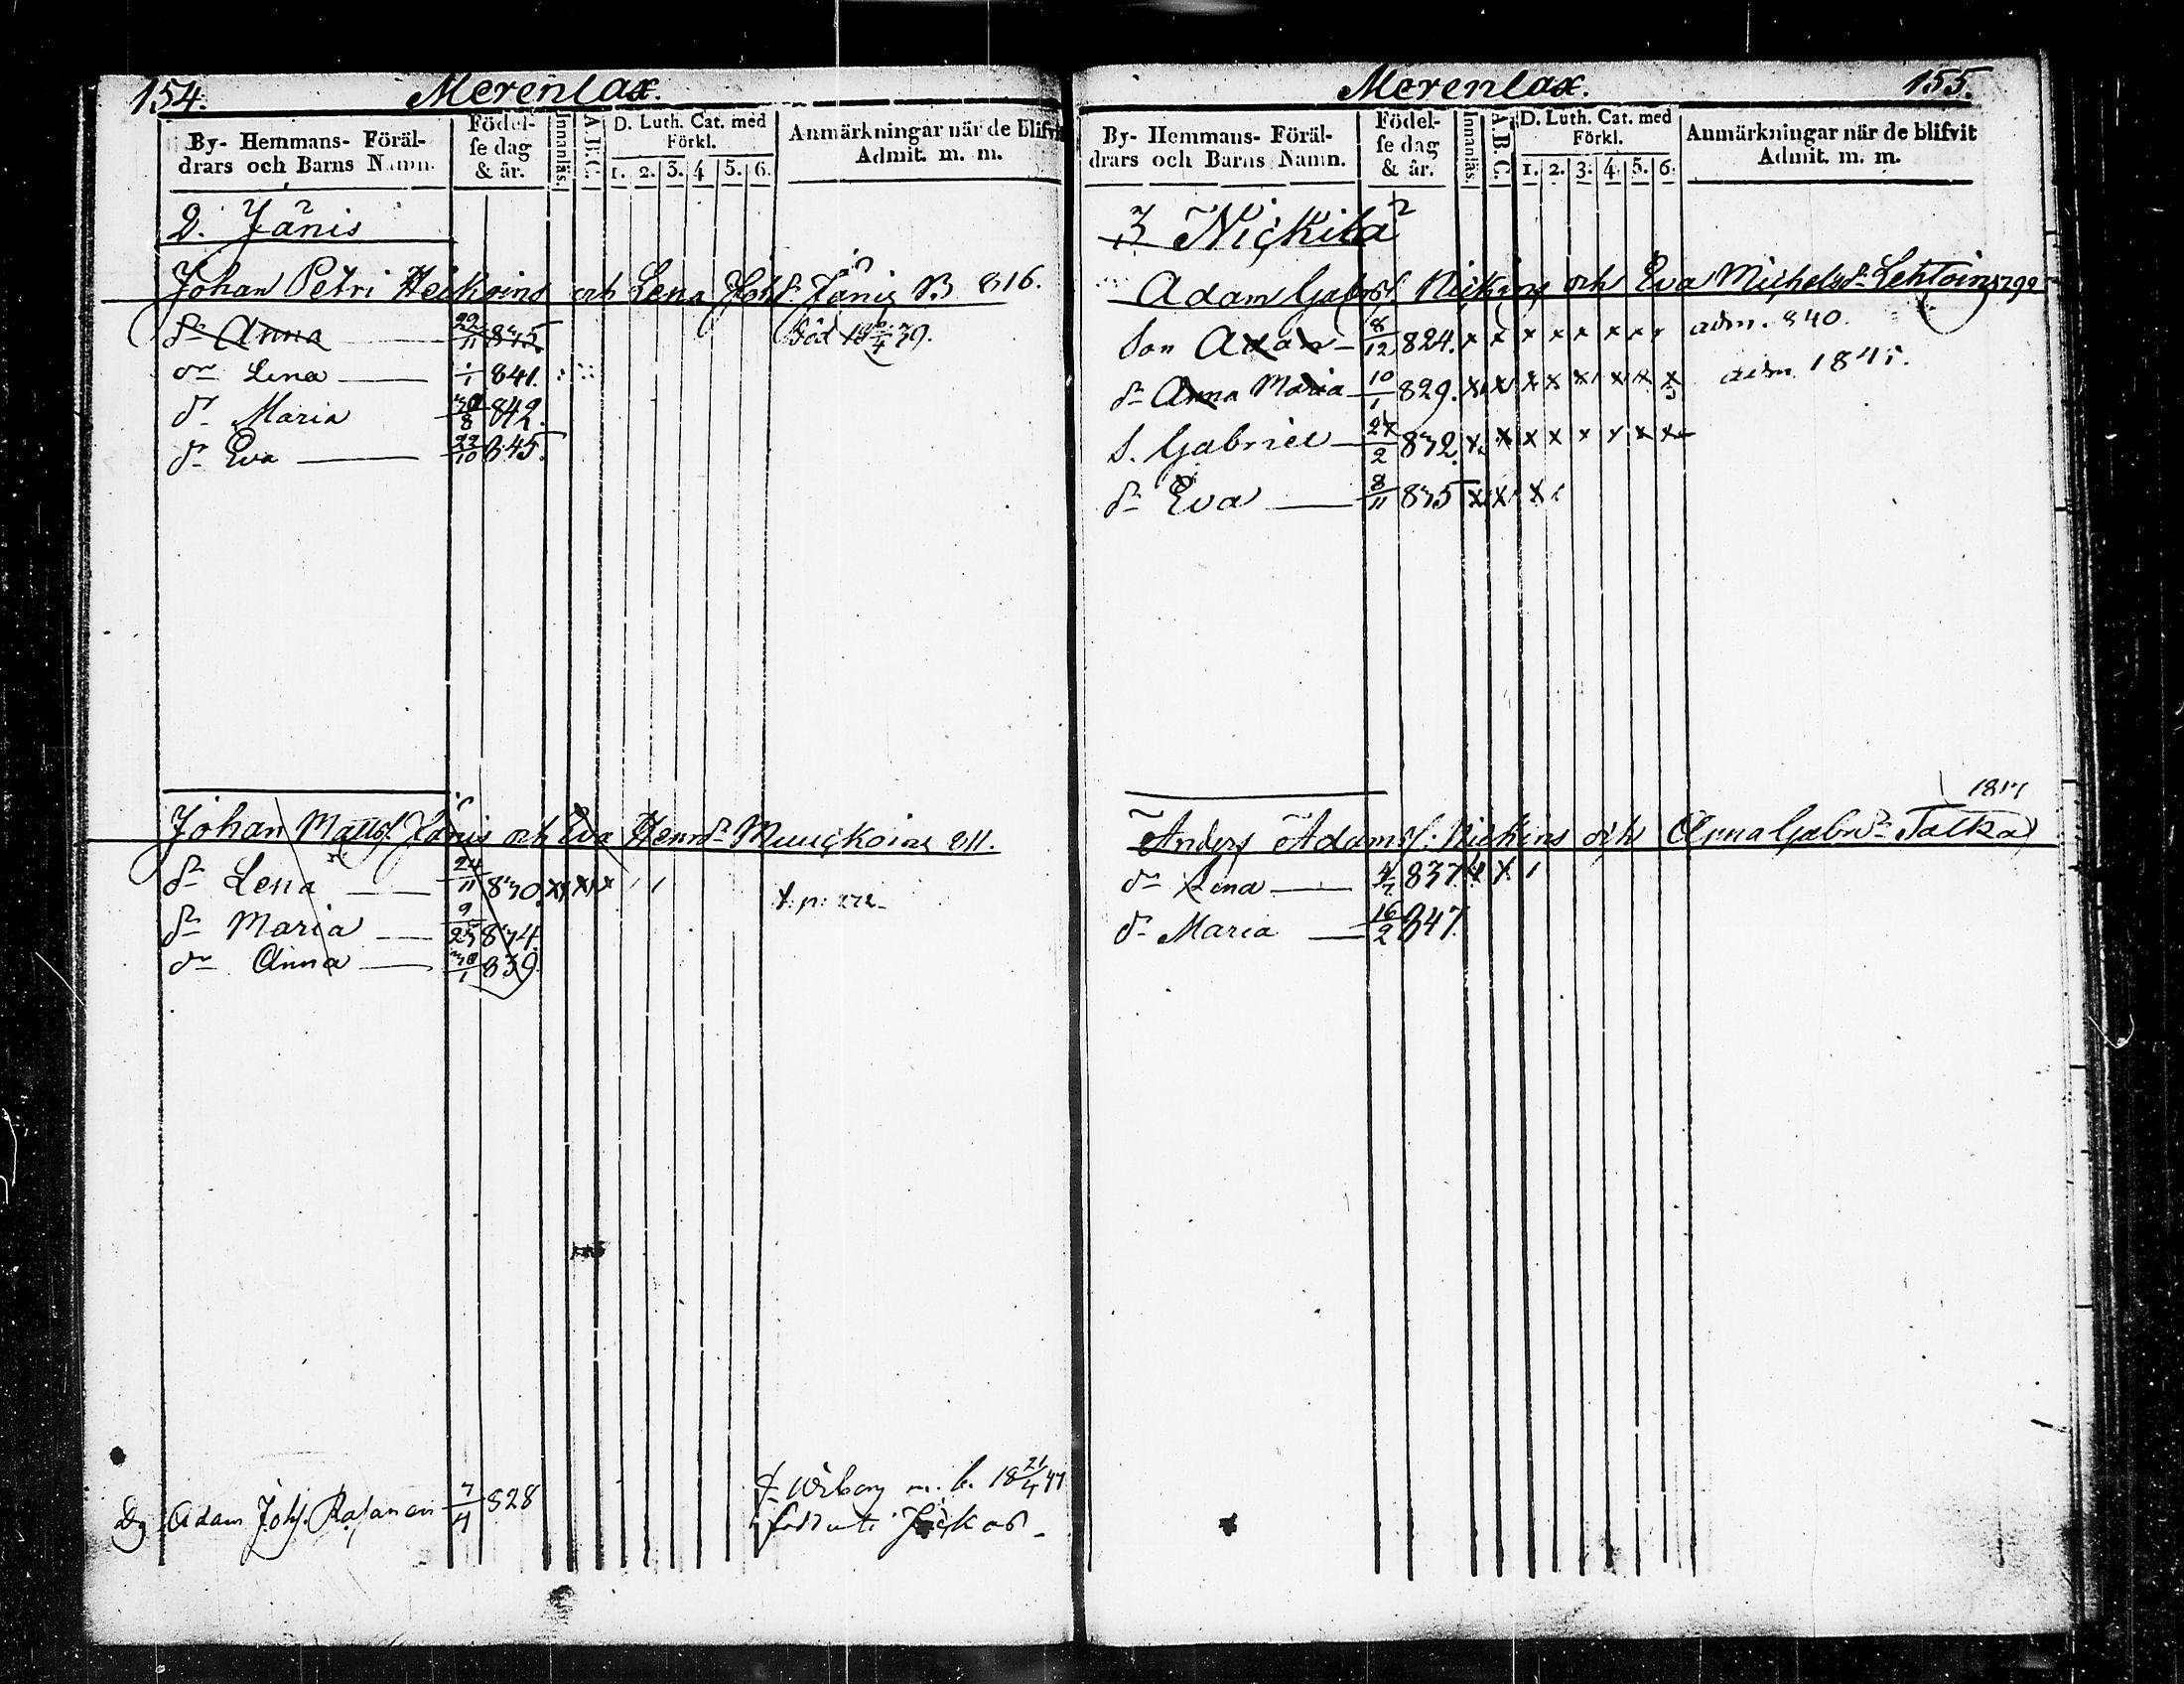 154. Merenlax.
By- Hemmans- Föräl-
drars och Barns Namn.
Födel-
se dag
& år.
Innanläs.
A.B.C.
D. Luth. Cat. med
Förkl.
1. 2. 3. 4 5. 6.
Anmärkningar när de blifvit
Admit. m. m.
2. Jänis
Johan Petri Heikoins och Lena Joh Jänis 816.
dr Anna 22/11 835. Död 39.
dr Lena 841.
dr Maria 30/8 842.
dr Eva 22/10 845.
Johan Matts Jänis och Eva Henr dr Muuckoins 811.
dr Lena 24/11 830. x x x
dr Maria 834.
dr Anna 30/1 839.
Dg Adam Joh. 7/4 828
Wiborg m. b. 18 21/4 47
Merenlax. 155.
By- Hemmans- Föräl-
drars och Barns Namn.
Födel-
se dag
& år.
Innanläs.
A.B.C
D. Luth. Cat. med
Förkl.
1. 2. 3. 4. 5. 6.
Anmärkningar när de blifvit
Admit. m. m.
3 Nickila
Adam Gabrsf Nickins och Eva Michelsdr Lehtoins 799
Son Adam 8/12 824. x x x x x x x x adm. 840.
dr Anna Maria 10/1 829. x x x x x x x x adm. 1845.
S. Gabriel 2 832. x x x x x x x x
dr Eva 8/11 835 x x x
1817
Anders Adamsf. Nickins och Anna Gabrdr Talka
dr Lena 4/7 837. x x
dr Maria 16/2 847.